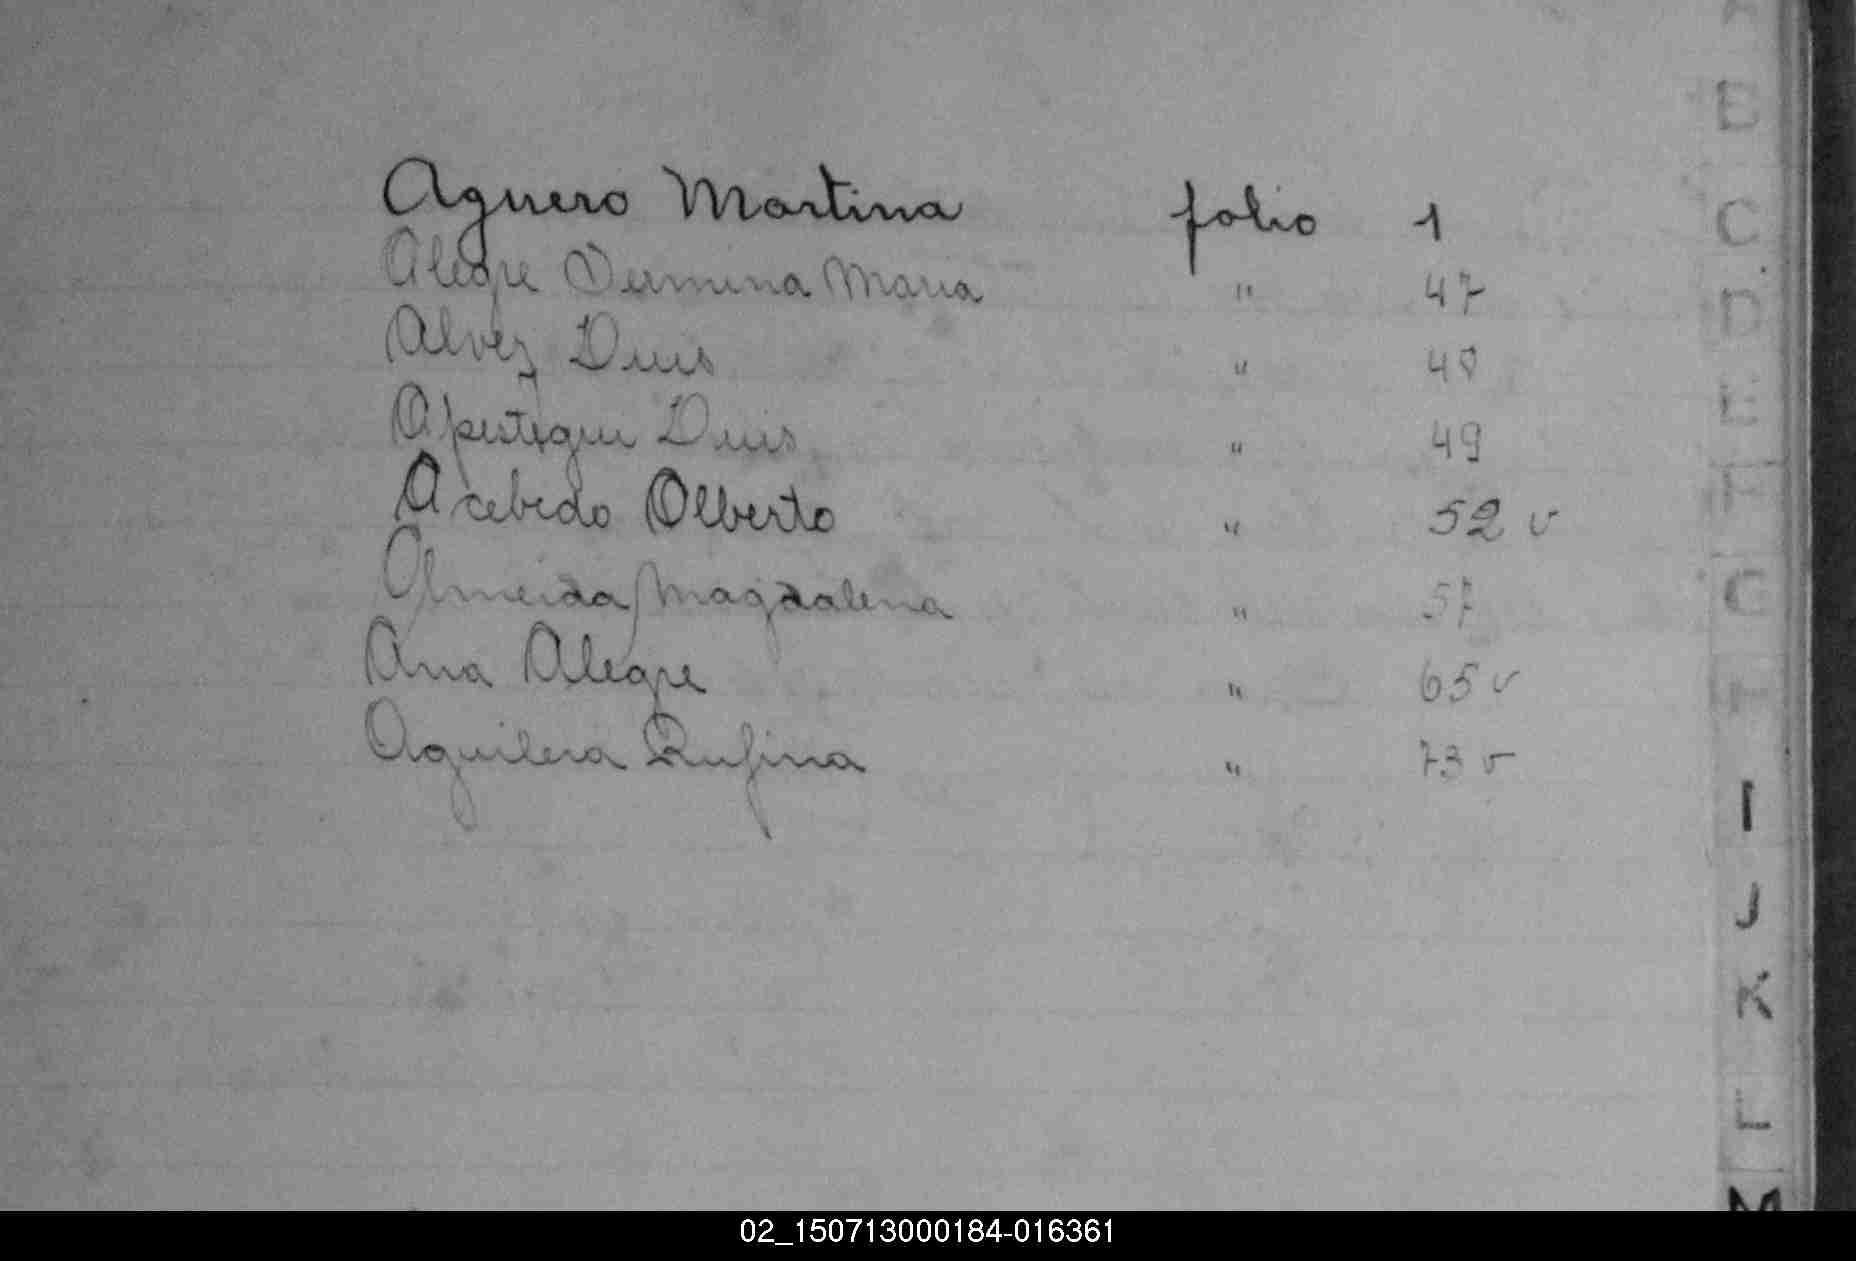 Aguero Martina folio 1
Alegre Maria " 47
Alvez Luis " 48
Apestegui Luis " 49
Acebedo Alberto " 52 v
Almeida Magdalena " 57
Ana Alegre " 65 v
Aguilera Rufina " 73 v
B
C
D
E
F
G
I
J
K
L
M
02_150713000184-016361